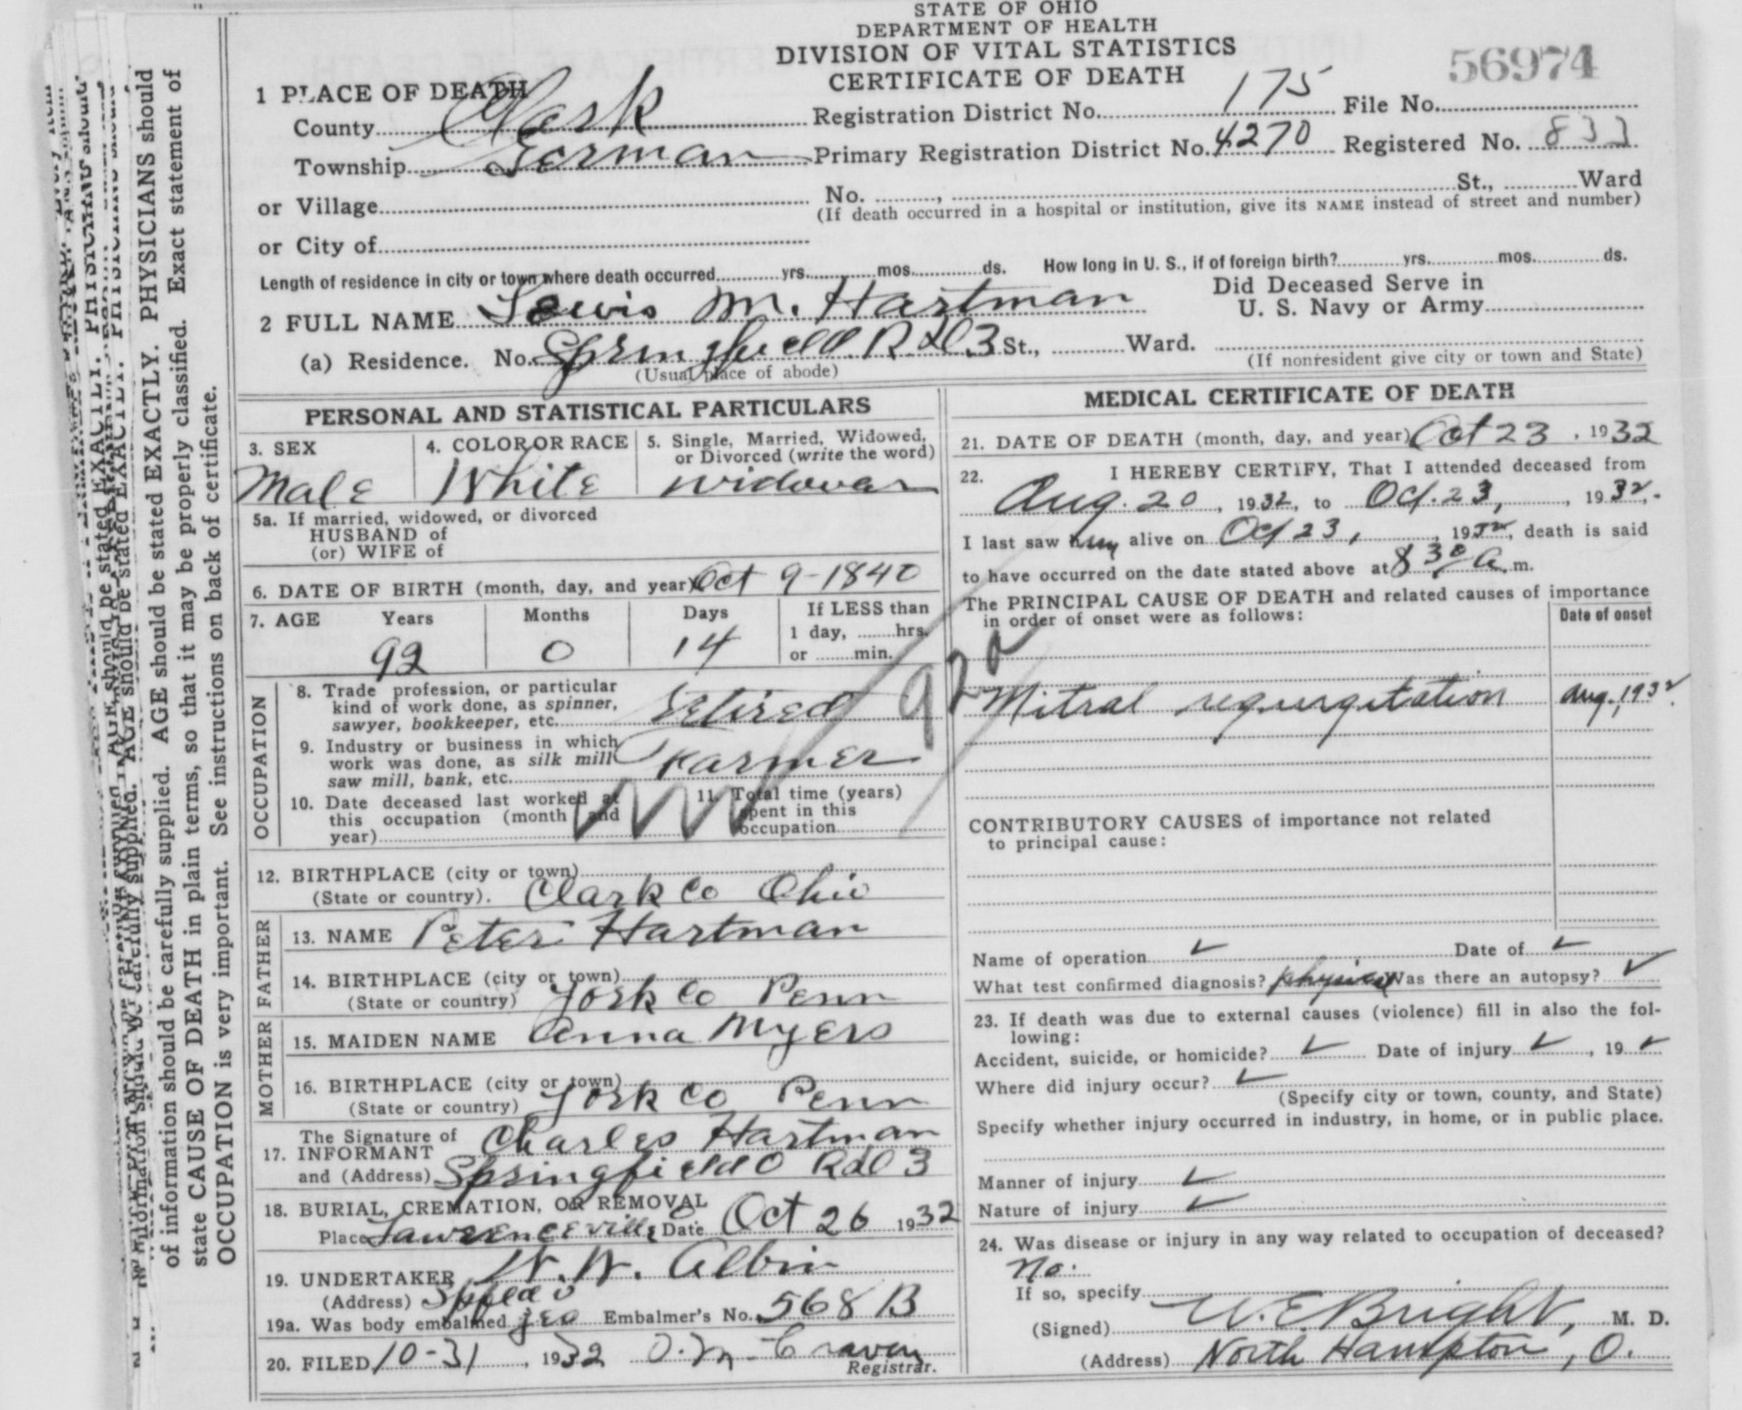 STATE OF OHIO
DEPARTMENT OF HEALTH
DIVISION OF VITAL STATISTICS
CERTIFICATE OF DEATH
56974
1 PLACE OF DEATH
County Clark Registration District No. 175 File No.
Township German Primary Registration District No. 4270 Registered No. 833
or Village No. , St., Ward
(If death occurred in a hospital or institution, give its NAME instead of street and number)
or City of
Length of residence in city or town where death occurred yrs. mos. ds. How long in U. S., if of foreign birth? yrs. mos. ds.
2 FULL NAME Lewis M. Hartman Did Deceased Serve in
U. S. Navy or Army
(a) Residence. No. Springfield R.d 3 St., Ward.
(Usual place of abode) (If nonresident give city or town and State)
PERSONAL AND STATISTICAL PARTICULARS
3. SEX 4. COLOR OR RACE 5. Single, Married, Widowed,
or Divorced (write the word)
Male White widower
5a. If married, widowed, or divorced
HUSBAND of
(or) WIFE of
6. DATE OF BIRTH (month, day, and year) Oct 9-1840
7. AGE Years Months Days If LESS than
1 day, hrs.
or min.
92 0 14
OCCUPATION
8. Trade profession, or particular
kind of work done, as spinner,
sawyer, bookkeeper, etc. Retired
9. Industry or business in which
work was done, as silk mill
saw mill, bank, etc. Farmer
10. Date deceased last worked at
this occupation (month and
year)
11. Total time (years)
spent in this
occupation
12. BIRTHPLACE (city or town)
(State or country). Clark Co Ohio
FATHER
13. NAME Peter Hartman
14. BIRTHPLACE (city or town)
(State or country) York Co Penn
MOTHER
15. MAIDEN NAME Anna Myers
16. BIRTHPLACE (city or town)
(State or country) York Co Penn
17. The Signature of
INFORMANT Charles Hartman
and (Address) Springfield O Rd 3
18. BURIAL, CREMATION, OR REMOVAL
Place Lawrenceville Date Oct 26 1932
19. UNDERTAKER W. W. Albin
(Address) Spfld O
19a. Was body embalmed yes Embalmer's No. 568 B
20. FILED 10-31, 1932 O. M. Craven
Registrar.
MEDICAL CERTIFICATE OF DEATH
21. DATE OF DEATH (month, day, and year) Oct 23, 1932
22. I HEREBY CERTIFY, That I attended deceased from
Aug. 20, 1932, to Oct. 23, 1932.
I last saw him alive on Oct 23, 1932, death is said
to have occurred on the date stated above at 8 30 a. m.
The PRINCIPAL CAUSE OF DEATH and related causes of importance
in order of onset were as follows: Date of onset
92a
Mitral regurgitation Aug., 1932.
CONTRIBUTORY CAUSES of importance not related
to principal cause:
Name of operation ✓ Date of ✓
What test confirmed diagnosis? physical Was there an autopsy? ✓
23. If death was due to external causes (violence) fill in also the fol-
lowing:
Accident, suicide, or homicide? ✓ Date of injury ✓, 19 ✓
Where did injury occur? ✓
(Specify city or town, county, and State)
Specify whether injury occurred in industry, in home, or in public place.
Manner of injury ✓
Nature of injury ✓
24. Was disease or injury in any way related to occupation of deceased?
No.
If so, specify
(Signed) W. E. Bright, M. D.
(Address) North Hampton, O.
of information should be carefully supplied. AGE should be stated EXACTLY. PHYSICIANS should
state CAUSE OF DEATH in plain terms, so that it may be properly classified. Exact statement of
OCCUPATION is very important. See instructions on back of certificate.